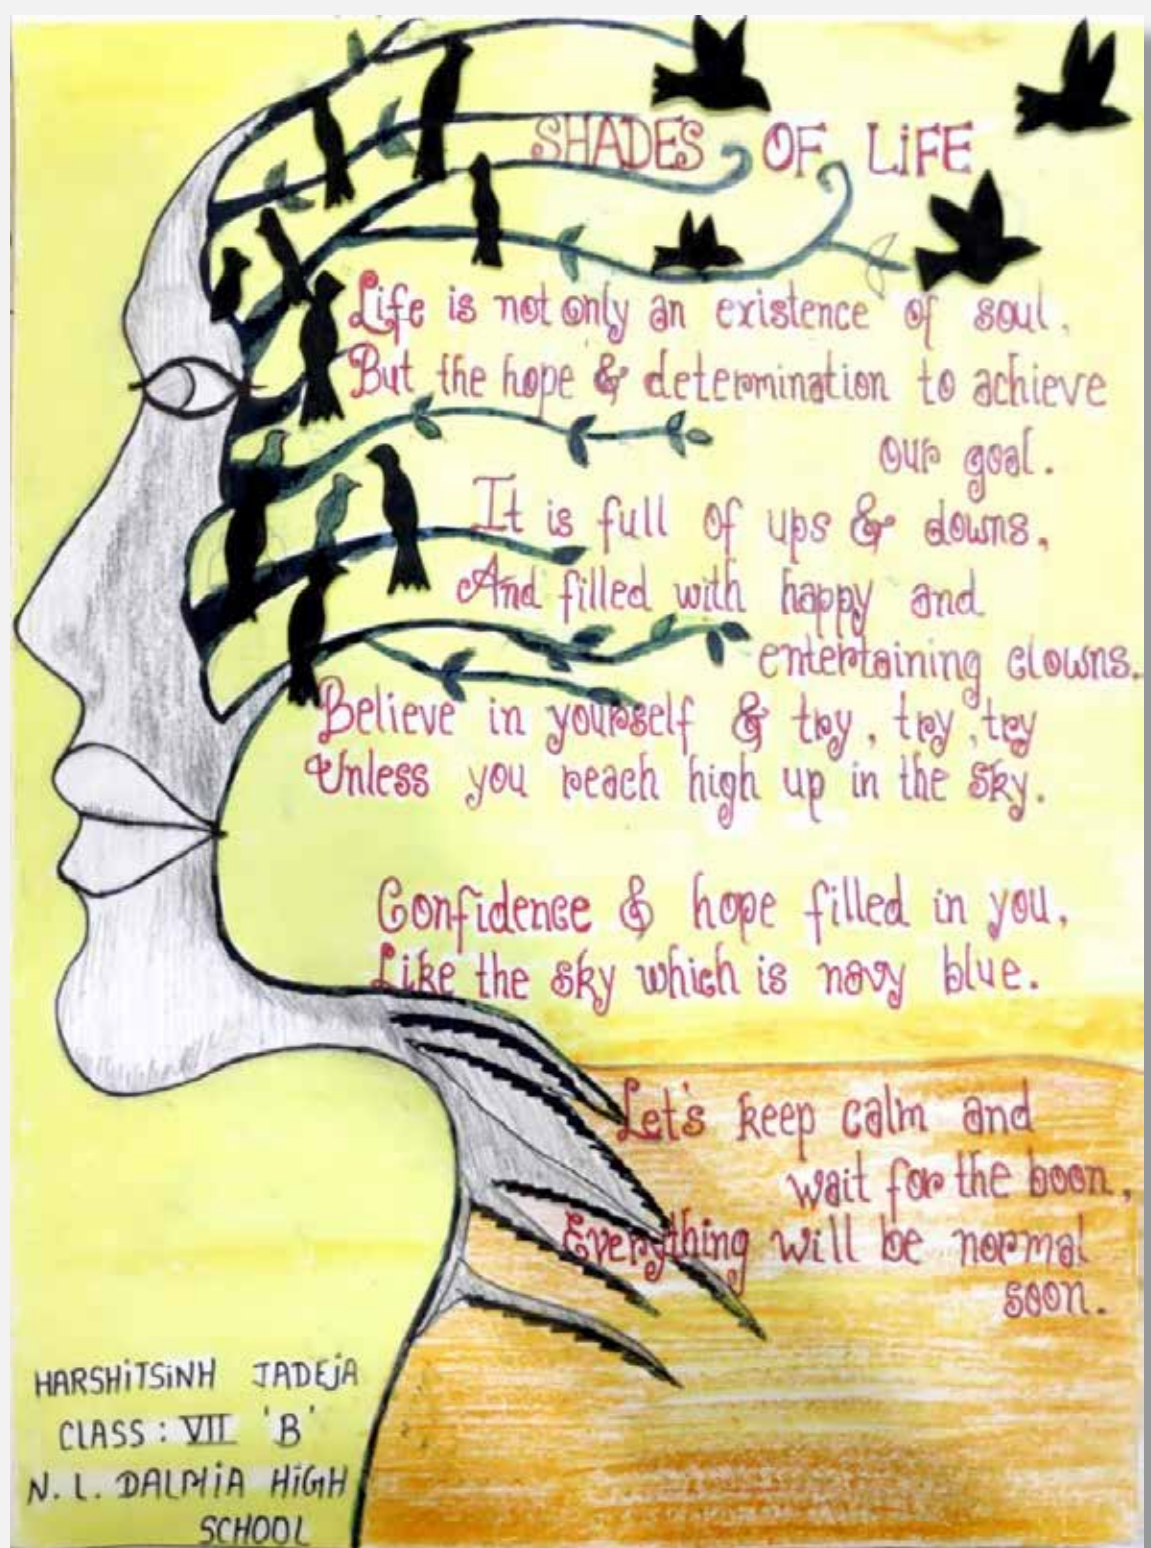 SHADES OF LiFE
Life is not only an existence of soul,
But the hope & determination to achieve
our goal.
It is full of ups & downs,
And filled with happy and
entertaining clowns.
Believe in yourself & try, try, try
Unless you reach high up in the sky.
Confidence & hope filled in you,
Like the sky which is navy blue.
Let's keep calm and
wait for the boon,
Everything will be normal
soon.
HARSHiTSiNH JADEJA
CLASS : VII 'B'
N. L. DALMiA HiGH
SCHOOL